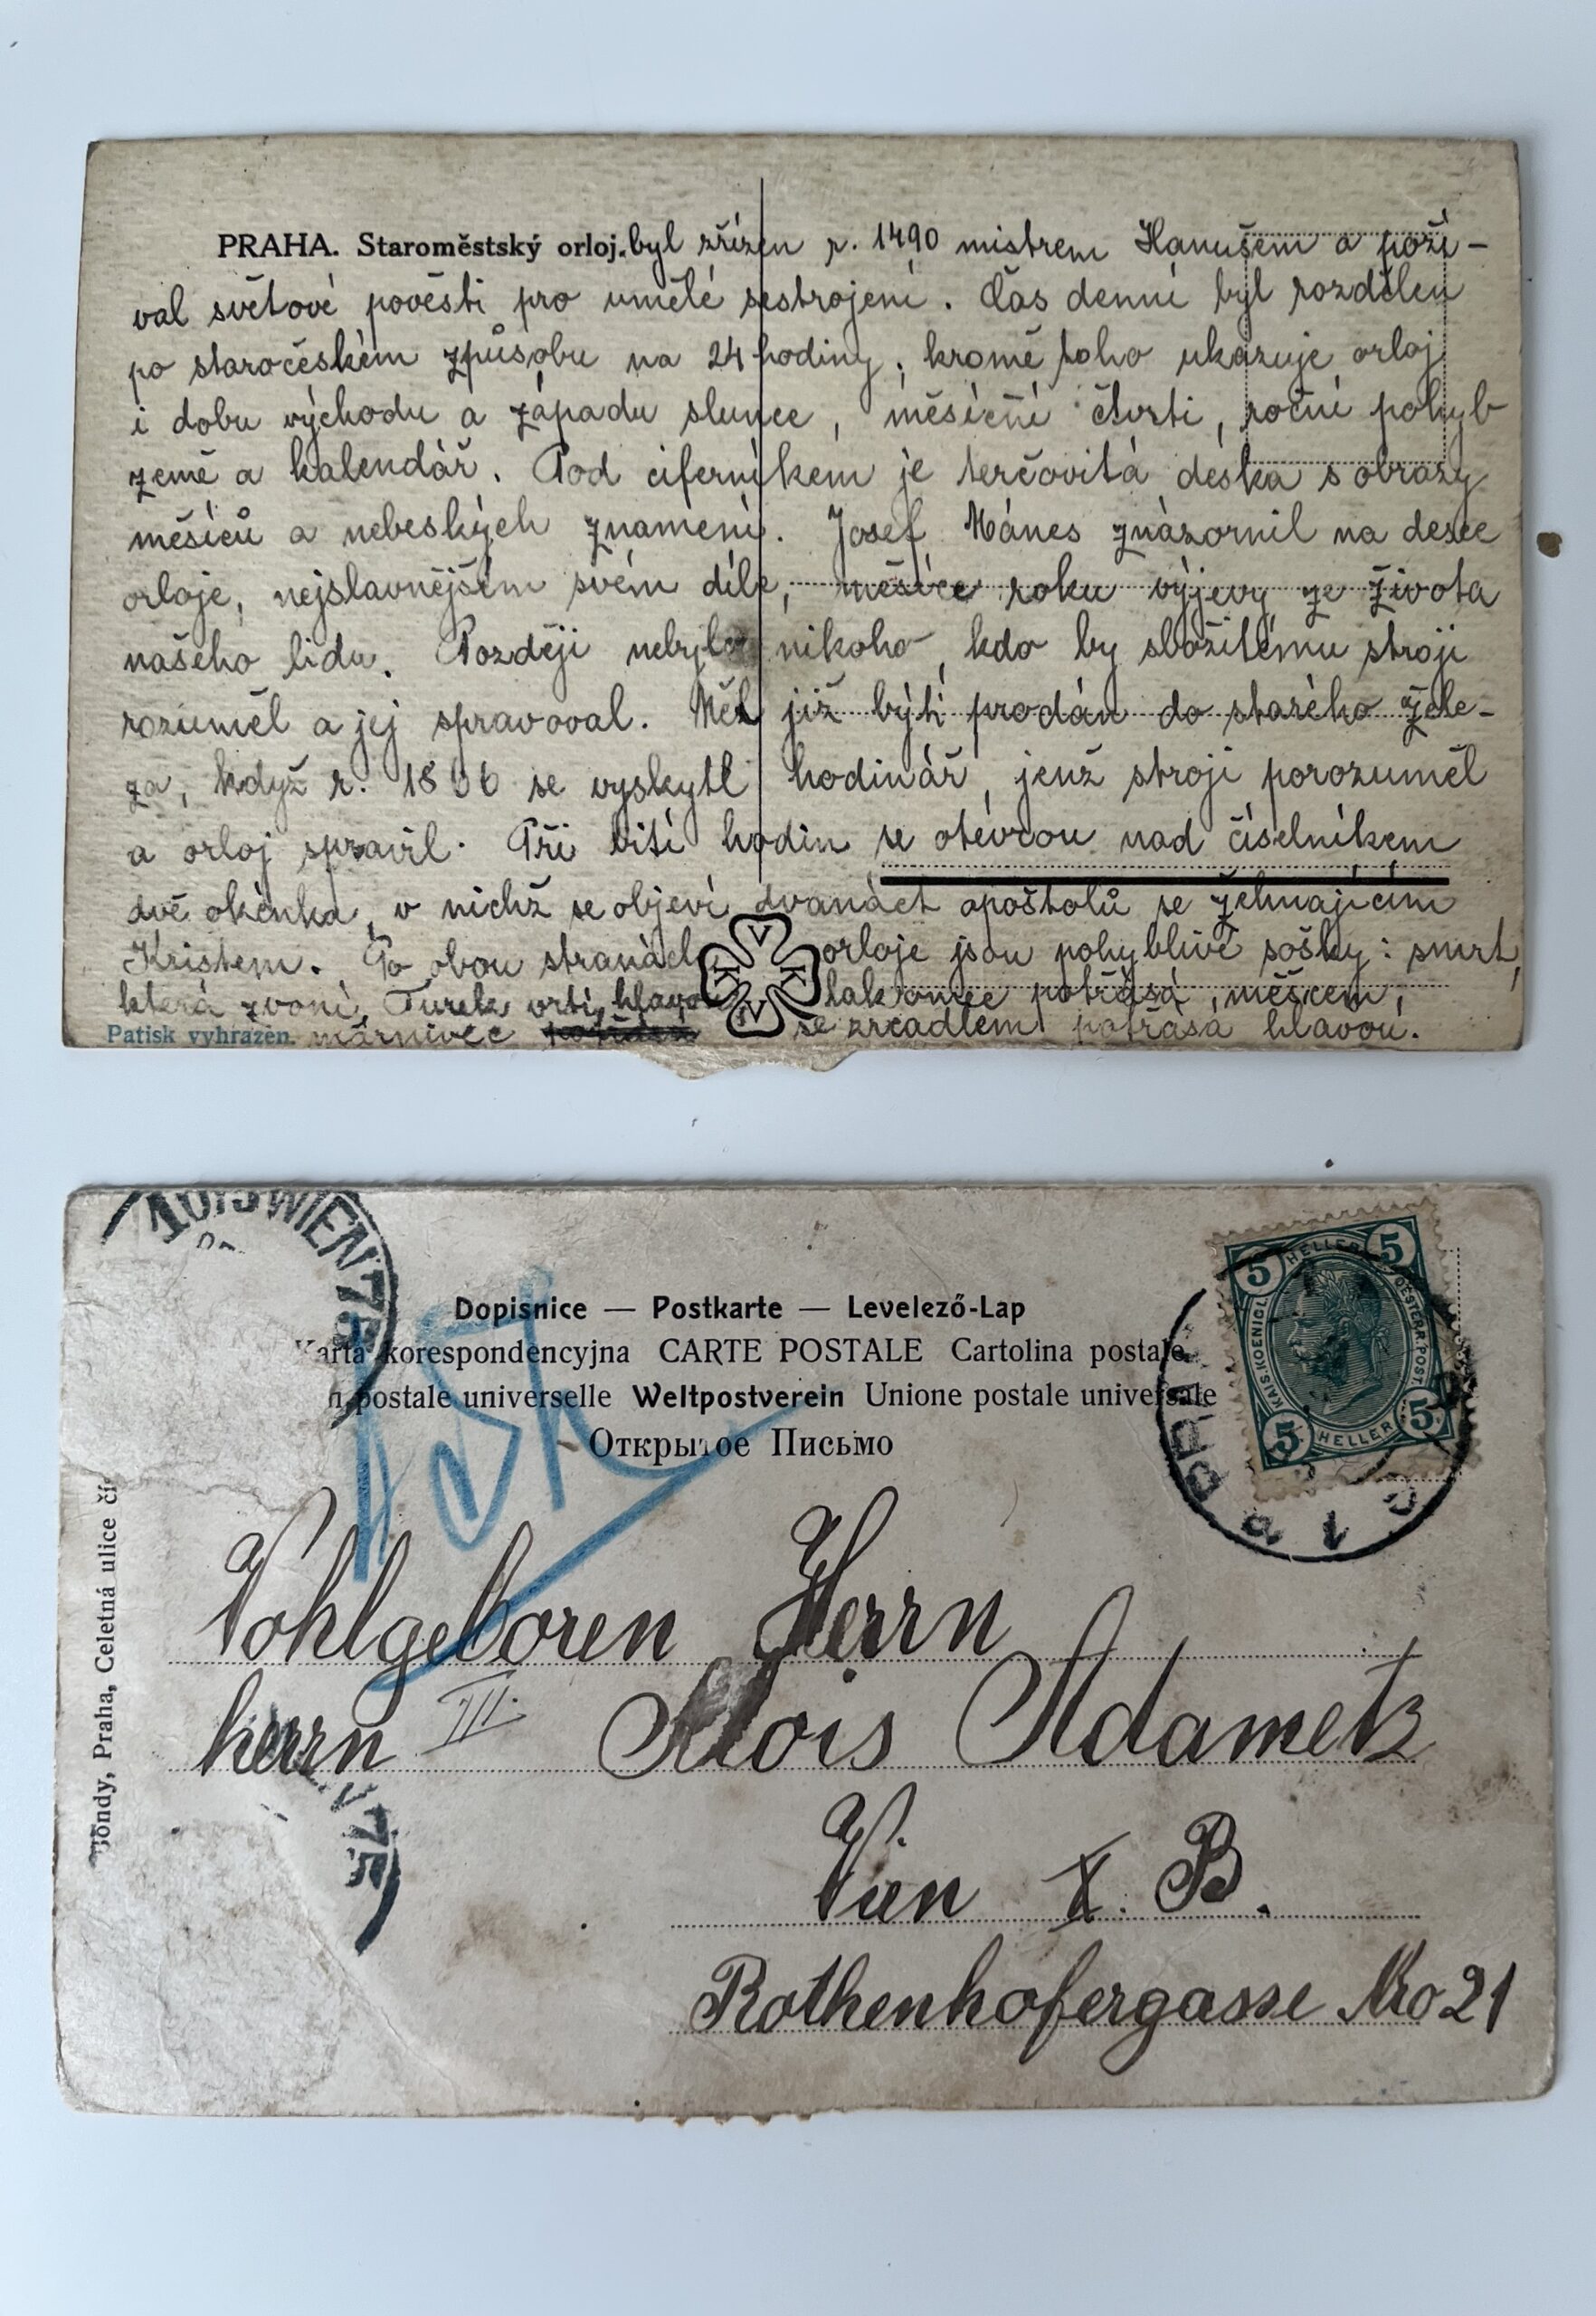 PRAHA. Staroměstský orloj. byl zřízen r. 1490 mistrem Hanušem a poží-
val světové pověsti pro umělé sestrojení. Čas denní byl rozdělen
po staročeském způsobu na 24 hodiny, kromě toho ukazuje orloj
i dobu východu a západu slunce, měsíční čtvrti, roční pohyb
země a kalendář. Pod ciferníkem je terčovitá deska s obrazy
měsíců a nebeských znamení. Josef Mánes znázornil na desce
orloje, nejslavnějším svém díle, měsíce roku výjevy ze života
našeho lidu. Později nebylo nikoho, kdo by složitému stroji
rozuměl a jej spravoval. Měl již býti prodán do starého žele-
za, když r. 18 6 se vyskytl hodinář, jenž stroji porozuměl
a orloj spravil. Při bití hodin se otevrou nad číselníkem
dvě okénka, v nichž se objeví dvanáct apoštolů se žehnajícím
Kristem. Po obou stranách orloje jsou pohyblivé sošky: smrt,
která zvoní, Turek vrtí hlavou, lakomec potřásá měšcem,
Patisk vyhrazen. márnivec se zrcadlem potřásá hlavou.
V K V K
10/3 WIEN 75
Dopisnice — Postkarte — Levelező-Lap
Karta korespondencyjna CARTE POSTALE Cartolina postale
n postale universelle Weltpostverein Unione postale universale
Открытое Письмо
5 HELLER 5
KAIS. KOENIGL. OESTERR. POST.
5 HELLER 5
PRA
Bondy, Praha, Celetná ulice čís
Wohlgeboren Herrn
herrn III. Alois Adametz
N 75
Wien X. B.
Rothenhofergasse Nro 21